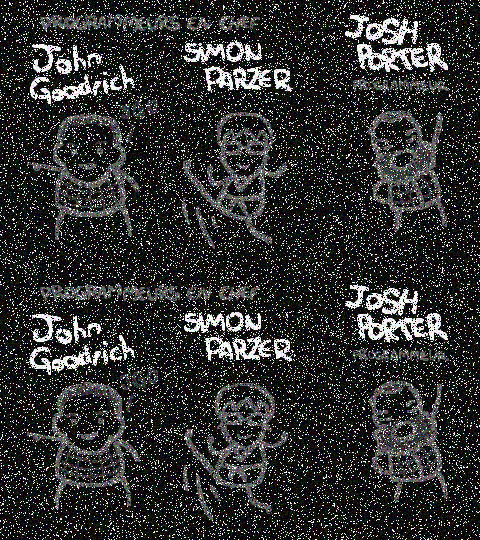 PROGRAMMEURS EN CHEF
John
Goodrich
SIMON
PARZER
JOSH
PORTER
PROGRAMMEUR
PROGRAMMEURS EN CHEF
John
Goodrich
SIMON
PARZER
JOSH
PORTER
PROGRAMMEUR